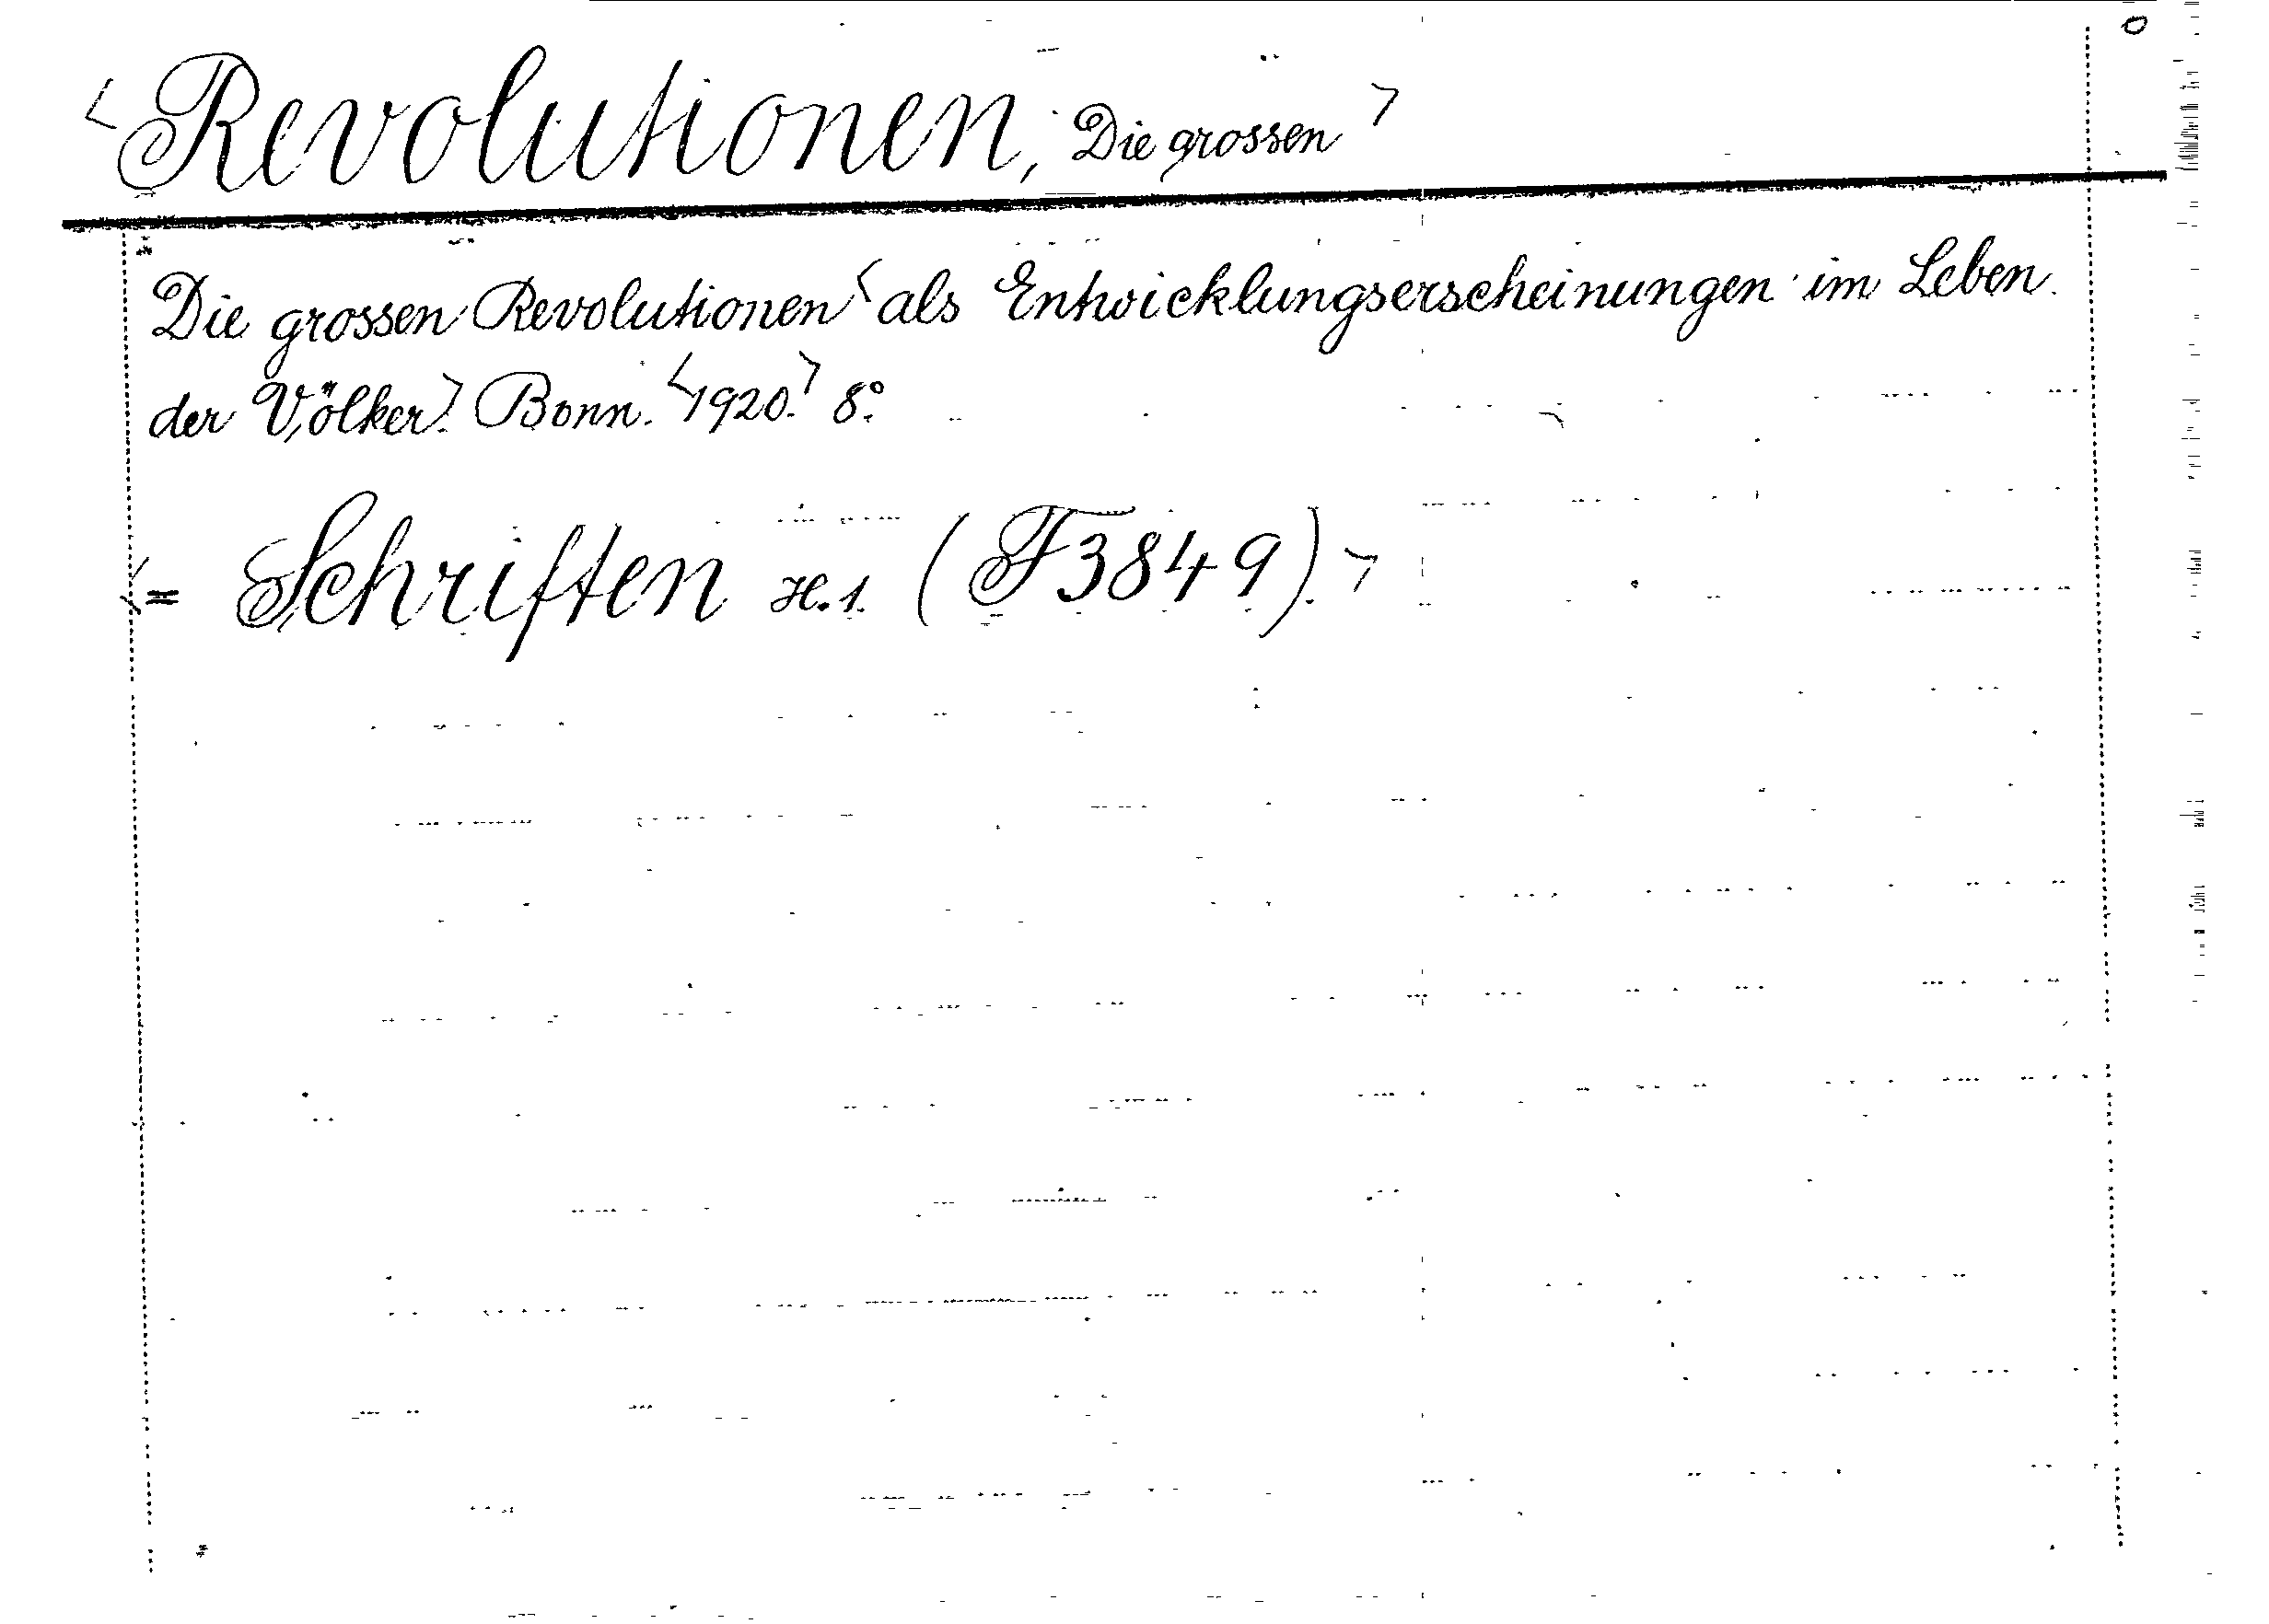 <Revolutionen, Die grossen>
Die grossen Revolutionen <als Entwicklungserscheinungen im Leben
der Völker>. Bonn. <1920.> 8°.
<= Schriften H. 1. (F3849).>